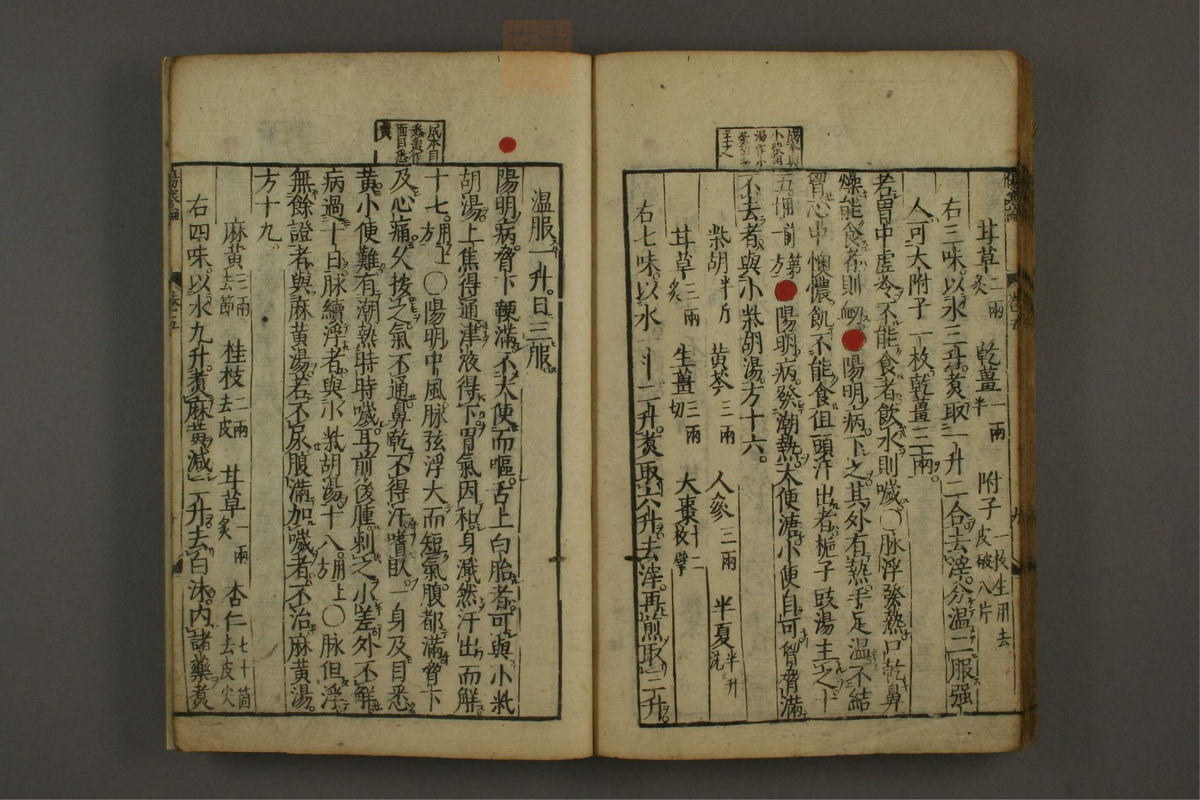 甘草二兩炙　乾薑一兩半　附子一枚生用去皮破八片
右三味以水三升煮取一升二合去滓分溫二服强
人可大附子一枚乾薑三兩
若胃中虛冷不能食者飲水則噦〇脉浮發熱口乾鼻
燥能食者則衂　陽明病下之其外有熱手足温不結
胷心中懊憹飢不能食但頭汗出者梔子豉湯主之十
五用前第　方　陽明病發潮熱大便溏小便自可胷脅滿
不去者與小柴胡湯方十六
柴胡半斤　黃芩三兩　人參三兩　半夏半升洗
甘草三兩炙　生薑三兩切　大棗十二枚擘
右七味以水一斗二升煮取六升去滓再煎取三升
温服一升日三服
陽明病脅下鞕滿不大便而嘔舌上白胎者可與小柴
胡湯上焦得通津液得下胃氣因和身濈然汗出而解
十七用上方〇陽明中風脉弦浮大而短氣腹都滿脅下
及心痛久按之氣不通鼻乾不得汗嗜臥一身及目悉
黃小便難有潮熱時時噦耳前後腫刺之小差外不解
病過十日脉續浮者與小柴胡湯十八用上方〇脉但浮
無餘證者與麻黃湯若不尿腹滿加噦者不治麻黃湯
方十九
麻黃三兩去節　桂枝二兩去皮　甘草一兩炙　杏仁七十箇去皮尖
右四味以水九升煮麻黃減二升去白沫內諸藥煮
成本目
悉黃作
面目悉
黃
傷寒論